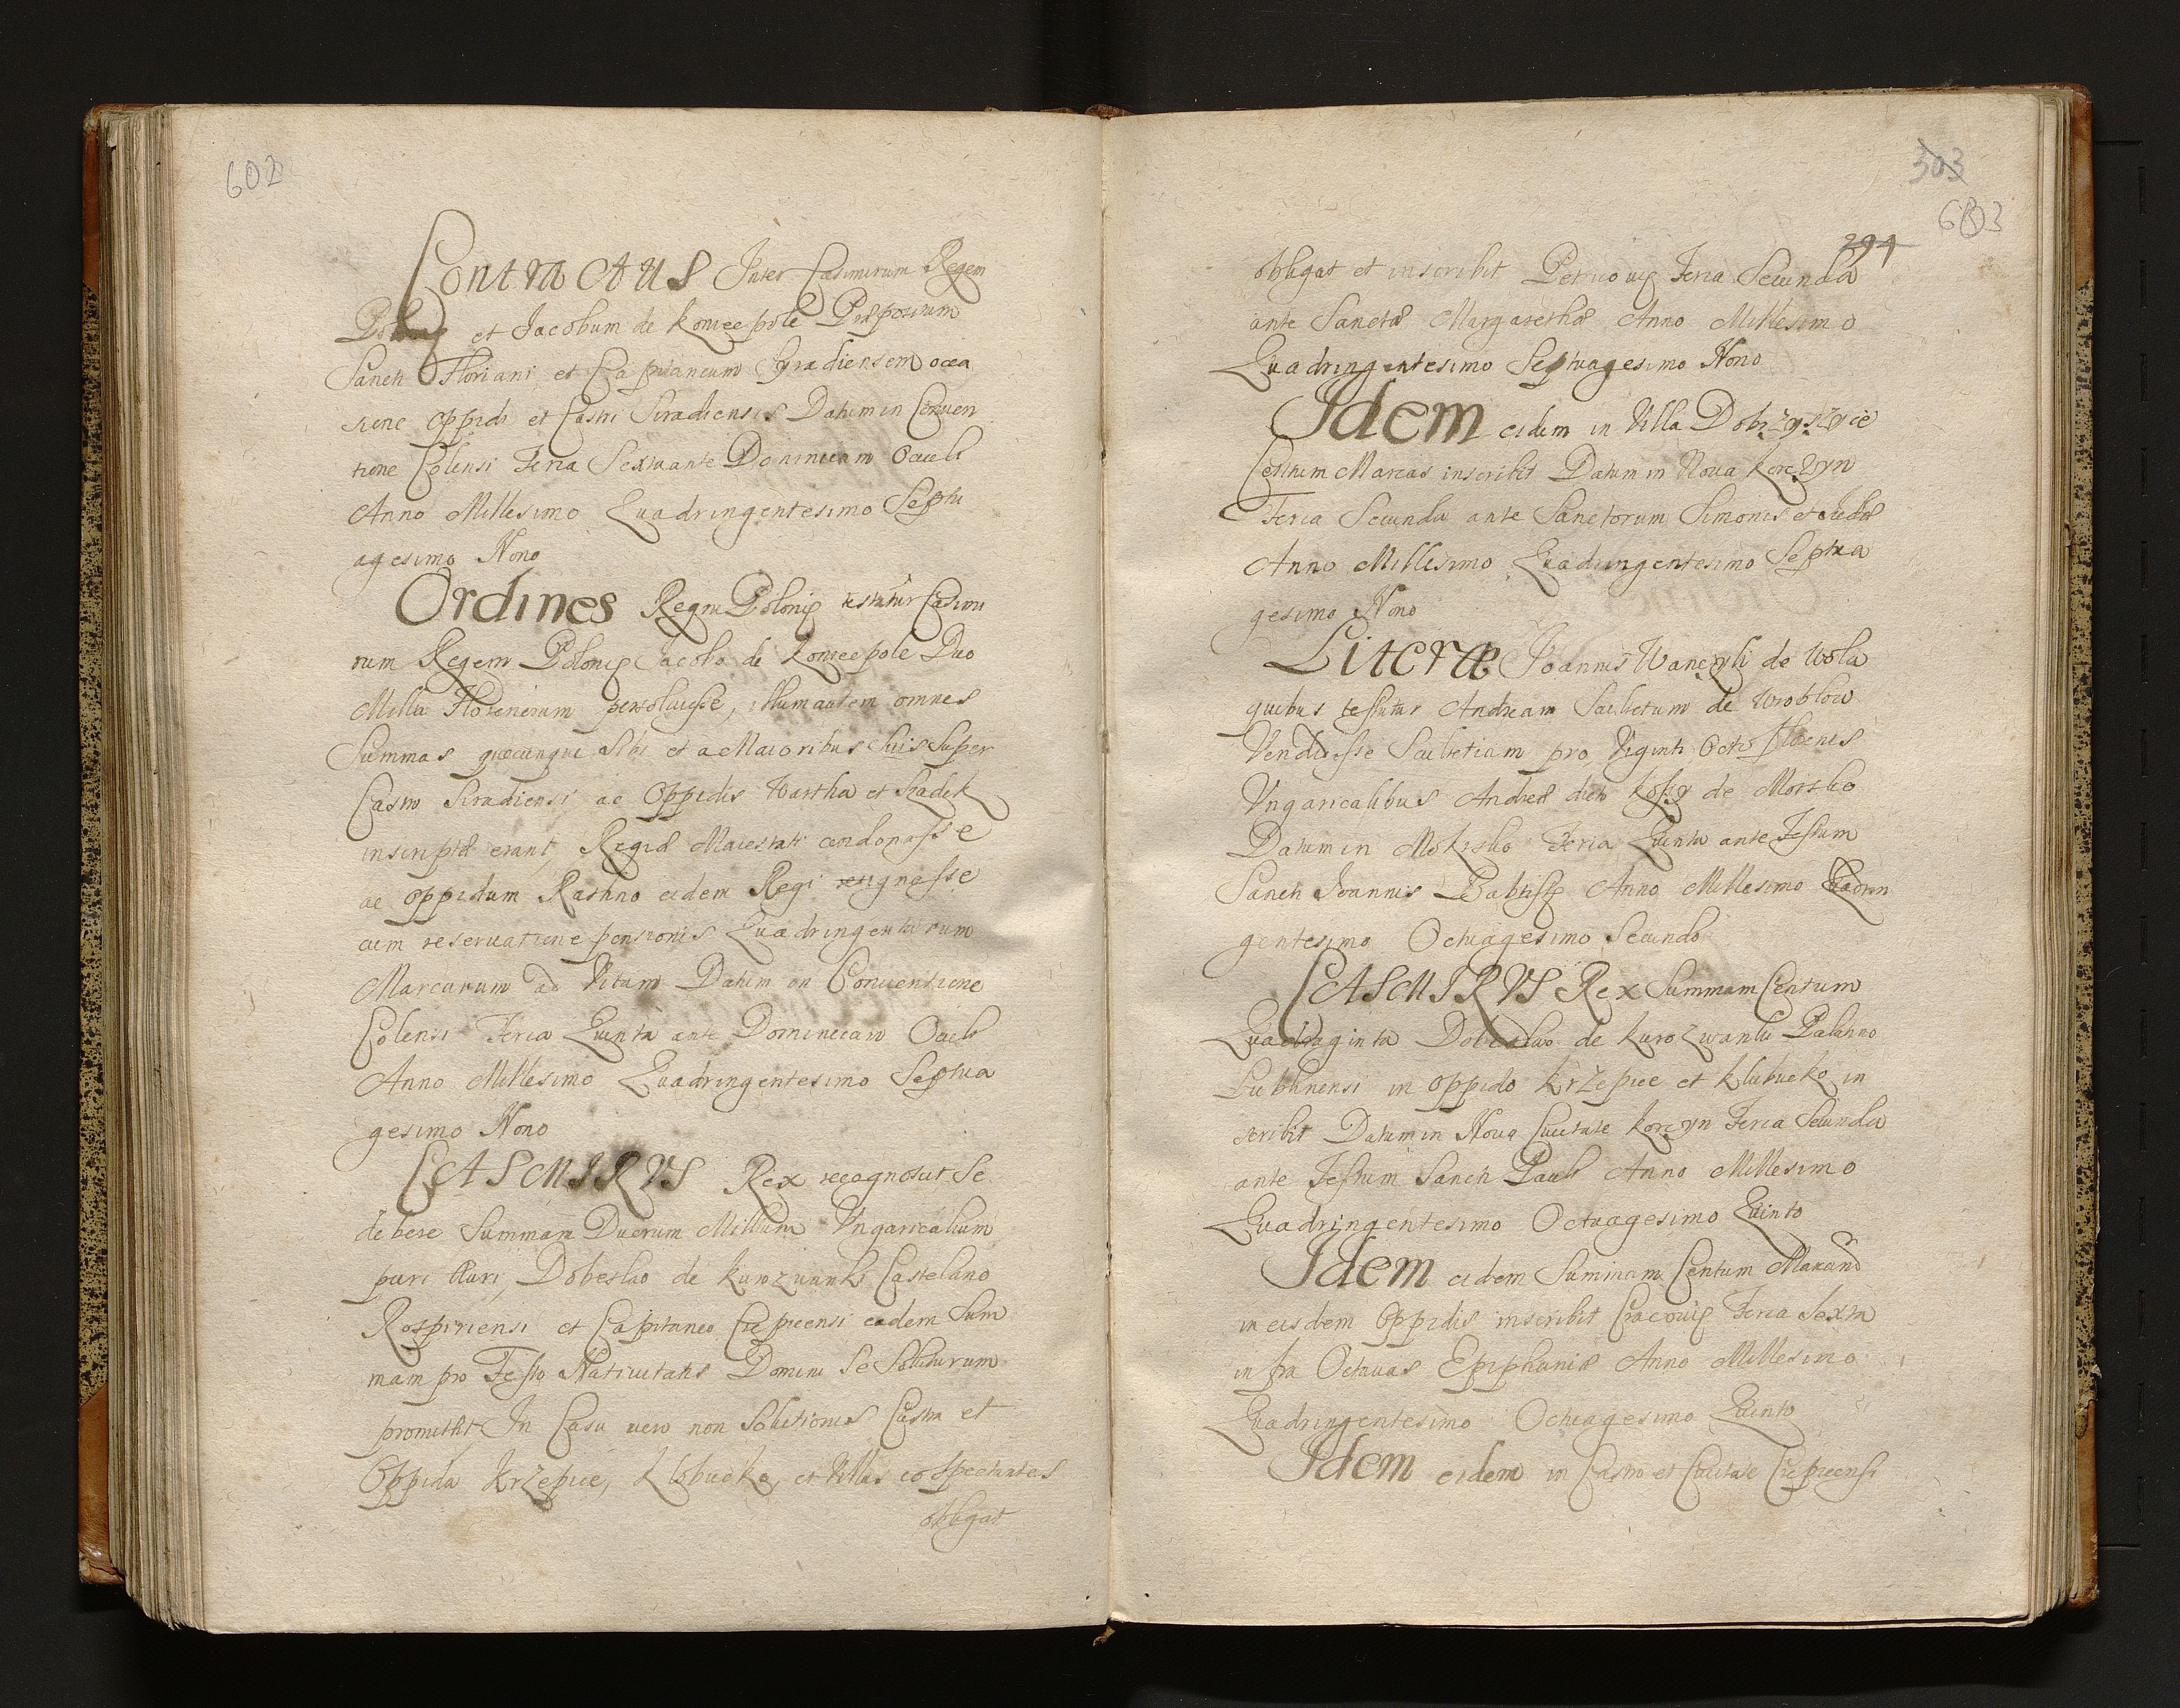 602
Contractus Inter Casimirum Regem
Polonię et Jacobum de Koniecpole Præpositum
Sancti Floriani et Capitaneum Syradiensem occa
sione oppidi et Castri Siradiensis Datum in Conuen
tione Colensi Feria Sexta ante Dominicam Oculi
Anno Millesimo Quadringentesimo Septu
agesimo Nono
Ordines Regni Polonię testatur Casimi
rum Regem Polonię Jacobo de Koniecpole Duo
Millia Florenorum persoluisse, illum autem omnes
Summas quæcunque sibi et a Maioribus suis super
Castro Siradiensi ac Oppidis Wartha et Szadek
inscriptæ erant, Regiæ Maiestati condonasse
ac oppidum Rathno eidem Regi resignasse
cum reseruatione pensionis Quadringentarum
Marcarum ad Vitam Datum in Conuentione
Colensi Feria Quinta ante Dominicam Oculi
Anno Millesimo Quadringentesimo Septua
gesimo Nono
CASMIRVS Rex recognoscit Se
debere Summam Duorum Millium Vngaricalium
puri Auri, Dobeslao de Kurozwanki Castelano
Rospiriensi et Capitaneo Crepicensi eadem Sum
mam pro Festo Natiuitatis Domini Se Soluturum
promittit In Casu vero non Solutionis Castra et
Oppida Krzepice, Klobucko, et Villas eo spectantes
obligat
303
603
294
obligat et inscribit Petricouię Feria Secunda
ante Sanctæ Margarethæ Anno Millesimo
Quadringentesimo Septuagesimo Nono
Idem eidem in Villa Dobrzyszyce
Centum Marcas inscribit Datum in Noua Korczyn
Feria Secunda ante Sanctorum Simonis et Iudæ
Anno Millesimo Quadringentesimo Septua
gesimo Nono
Literæ Joannis Wanczyk de Wola
quibus testatur Andream Scultetum de Wroblow
Vendidisse Scultetiam pro Viginti Octo florenis
Vngaricalibus Andreæ dicto de Morsko
Datum in Mokrsko Feria Quinta ante Festum
Sancti Joannis Baptistę Anno Millesimo Quadrin
gentesimo Octuagesimo Secundo
CASMIRVS Rex Summam Centum
Quadraginta Dobeslao de Kurozwanki Palatino
Lublinensi in oppido Krzepice et Klubucko in
scribit Datum in Noua Ciuitate Korczyn Feria Secunda
ante Festum Sancti Pauli Anno Millesimo
Quadringentesimo Octuagesimo Quinto
Idem eidem Summam Centum Marcarum
in eisdem Oppidis inscribit Cracouię Feria Sexta
in fra Octauas Epiphaniæ Anno Millesimo
Quadringentesimo Octuagesimo Quinto
Idem eidem in Castro et Ciuitate Crepicensi